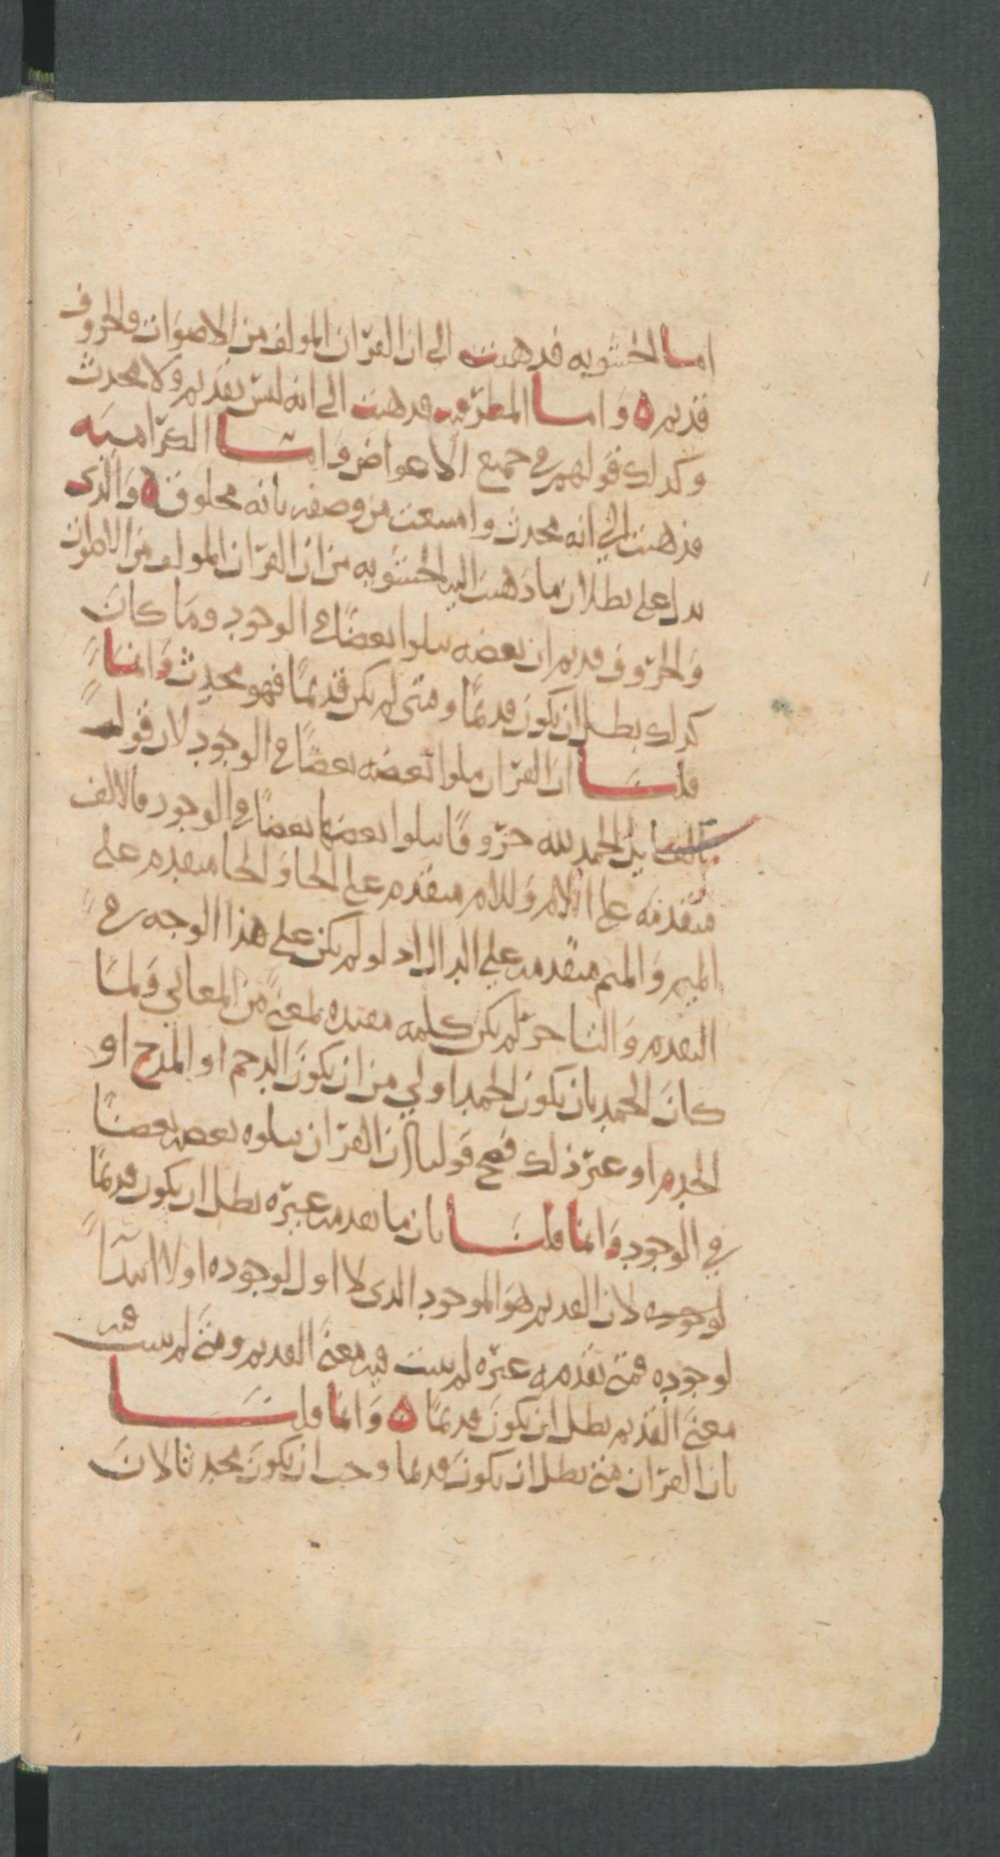 اما الحشويه فذهبت الى ان القران المولف من الاصوات والحروف
قديم ه واما المطرفيه فذهبت الى انه ليس بقديم ولا محدث
وكذلك قولهم في جميع الاعراض واما الكراميه
فذهبت الى انه محدث وامتنعت من وصفه بانه مخلوق ه والذي
يدل على بطلان ما ذهبت اليه الحشويه من ان القران المولف من الاصوات
والحروف قديم ان بعضه يتلوا بعضًا في الوجود وما كان
كذلك بطل ان يكون قديمًا ومتى لم يكن قديمًا فهو محدث وانما
قلنا ان القران يتلوا بعضه بعضًا في الوجود لان قول
القايل الحمد لله حروفًا يتلوا بعضها بعضًا في الوجود فالالف
متقدمه على اللام واللام متقدم على الحا والحا متقدم على
الميم والميم متقدمه على الدال اذ لو لم يكن على هذا الوجه في
التقدم والتاخر لم يكن كلمه مفيده لمعنى من المعاني ولما
كان الحمد بان يكون الحمد اولى من ان يكون الدحم او المدح او
الحدم او غير ذلك فصح قولنا ان القران يتلوه بعضه بعضًا
في الوجود وانما قلنا بان ما تقدمه غيره بطل ان يكون قديمًا
لوجوده لان القديم هو الموجود الذي لا اول لوجوده اولا ابتدا
لوجوده فمتى تقدمه غيره لم يثبت فيه معنى القديم ومتى لم يثبت فيه
معنى القديم بطل ان يكون قديمًا ه وانما قلنا
بان القران متى بطل ان يكون قديما وجب ان يكون محدثا لان